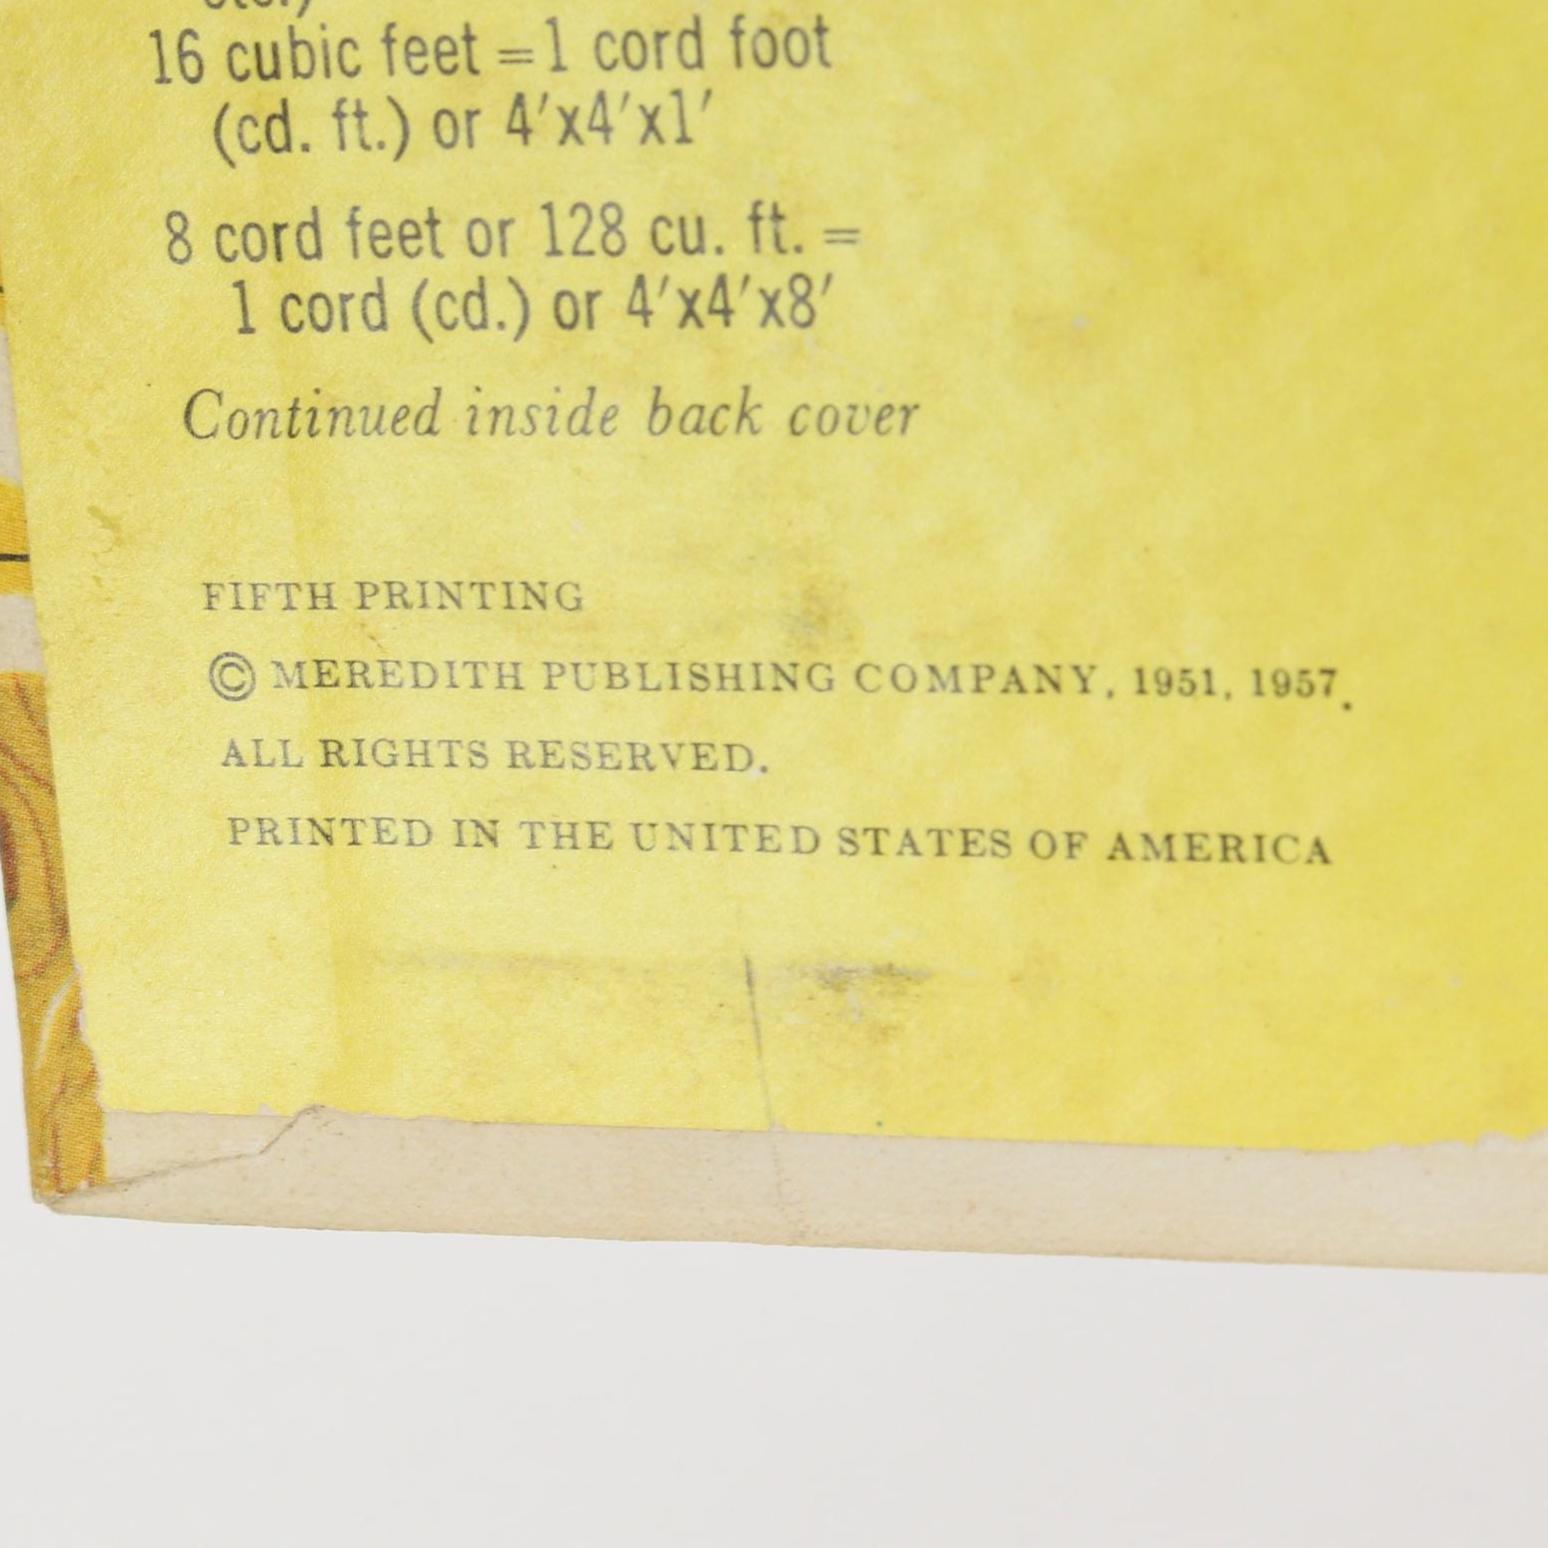 16 cubic feet = 1 cord foot
(cd. ft.) or 4′x4′x1′
8 cord feet or 128 cu. ft. =
1 cord (cd.) or 4′x4′x8′
Continued inside back cover
FIFTH PRINTING
© MEREDITH PUBLISHING COMPANY, 1951, 1957.
ALL RIGHTS RESERVED.
PRINTED IN THE UNITED STATES OF AMERICA